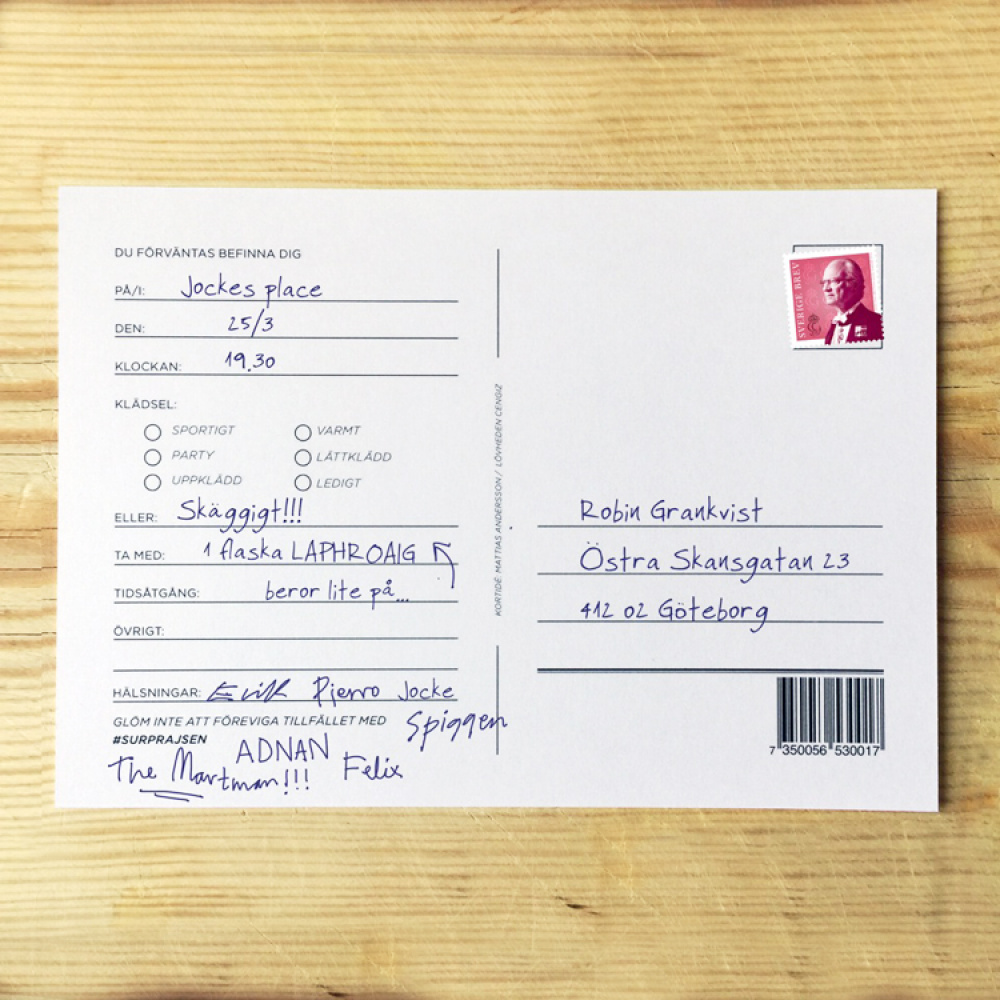 DU FÖRVÄNTAS BEFINNA DIG
PÅ/I: Jockes place
DEN: 25/3
KLOCKAN: 19.30
KLÄDSEL:
SPORTIGT VARMT
PARTY LÄTTKLÄDD
UPPKLÄDD LEDIGT
ELLER: Skäggigt!!!
TA MED: 1 flaska LAPHROAIG
TIDSÅTGÅNG: beror lite på...
ÖVRIGT:
HÄLSNINGAR: Erik Pierro Jocke
GLÖM INTE ATT FÖREVIGA TILLFÄLLET MED Spiggen
#SURPRAJSEN
ADNAN
The Martman!!! Felix
KORTIDÉ: MATTIAS ANDERSSON / LÖVHEDEN CENGIZ
SVERIGE BREV
Robin Grankvist
Östra Skansgatan 23
412 02 Göteborg
7 350056 530017